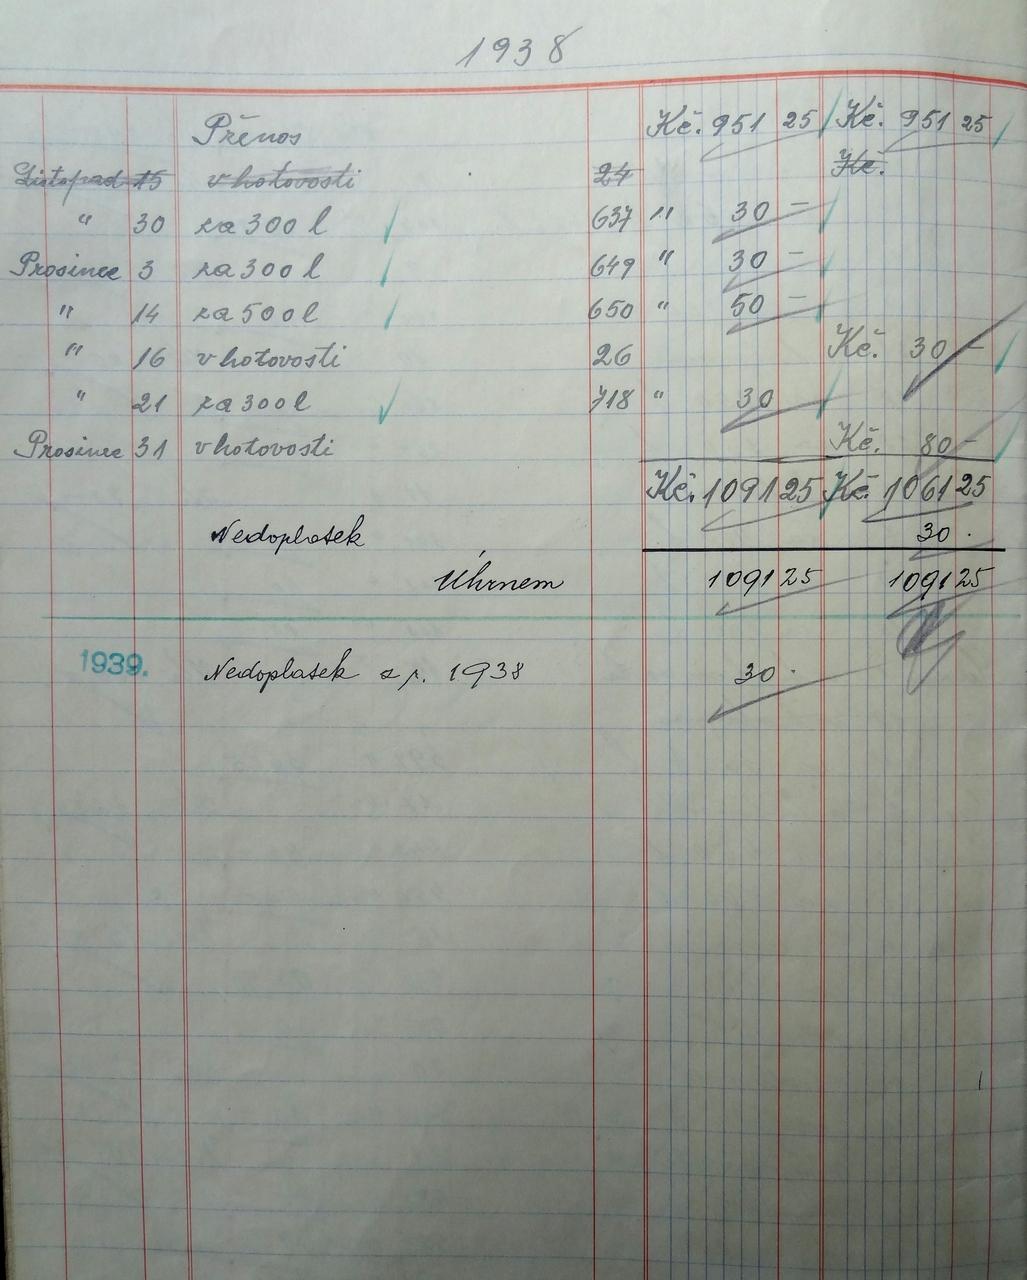 1938
Přenos Kč. 951 25 Kč. 951 25
Listopad 15 v hotovosti 24 Kč.
" 30 za 300 l 637 " 30 –
Prosinec 3 za 300 l 649 " 30 –
" 14 za 500 l 650 " 50 –
" 16 v hotovosti 26 Kč. 30 –
" 21 za 300 l 718 " 30
Prosinec 31 v hotovosti Kč. 80 –
Kč. 1091 25 Kč. 1061 25
Nedoplatek 30 .
Úhrnem 1091 25 1091 25
1939. Nedoplatek z r. 1938 30 .